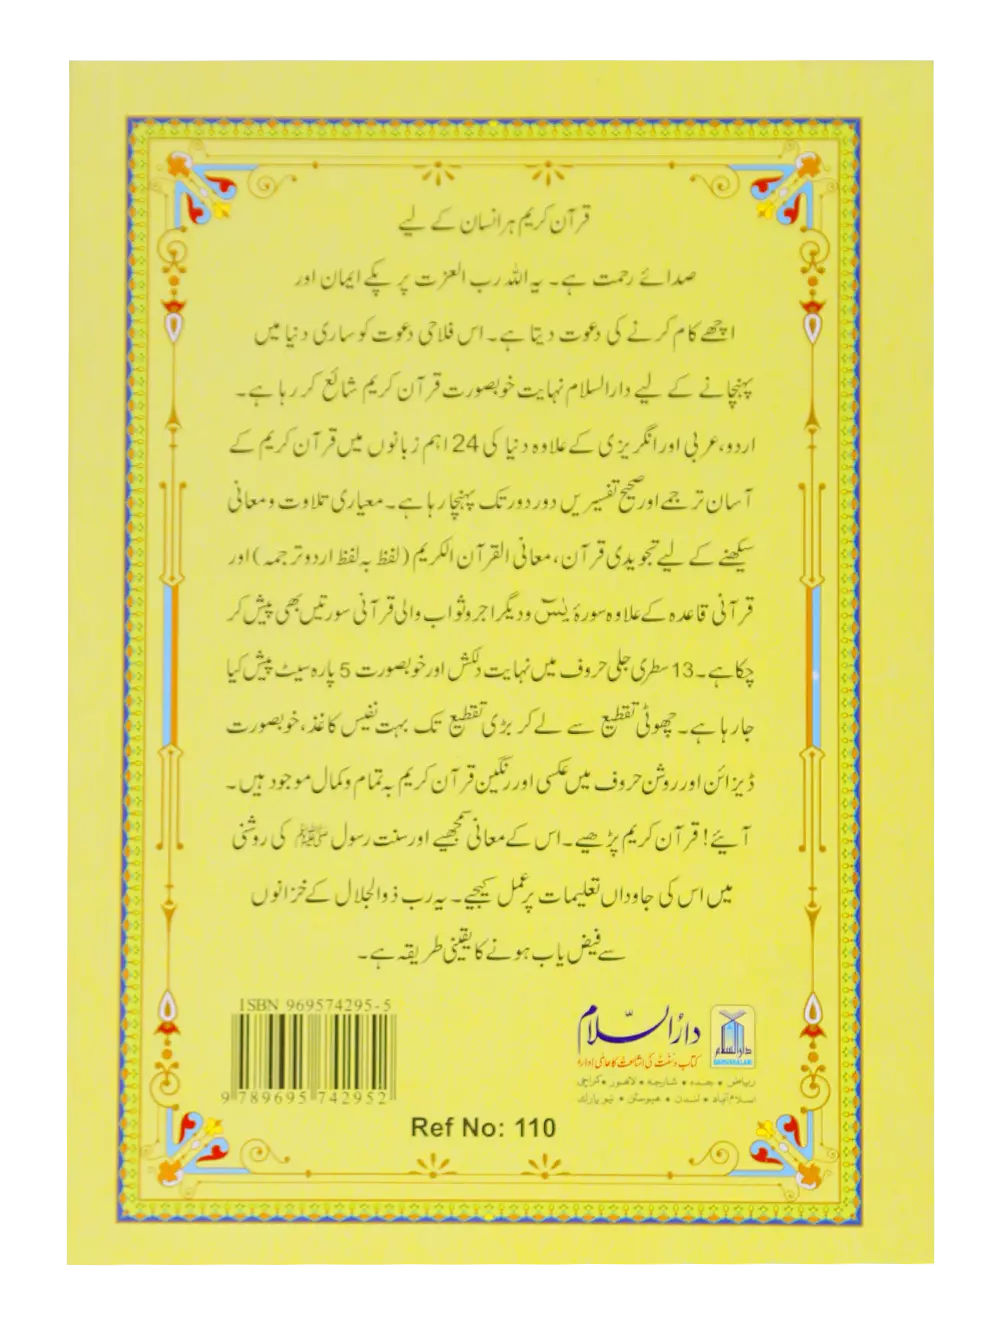 قرآن کریم ہر انسان کے لیے
صدائے رحمت ہے۔ یہ اللہ رب العزت پر پکے ایمان اور
اچھے کام کرنے کی دعوت دیتا ہے۔ اس فلاحی دعوت کو ساری دنیا میں
پہنچانے کے لیے دارالسلام نہایت خوبصورت قرآن کریم شائع کر رہا ہے۔
اردو، عربی اور انگریزی کے علاوہ دنیا کی 24 اہم زبانوں میں قرآن کریم کے
آسان ترجمے اور صحیح تفسیریں دور دور تک پہنچا رہا ہے۔ معیاری تلاوت و معانی
سیکھنے کے لیے تجویدی قرآن، معانی القرآن الکریم (لفظ بہ لفظ اردو ترجمہ) اور
قرآنی قاعدہ کے علاوہ سورۂ یٰسٓ و دیگر اجر و ثواب والی قرآنی سورتیں بھی پیش کر
چکا ہے۔ 13 سطری جلی حروف میں نہایت دلکش اور خوبصورت 5 پارہ سیٹ پیش کیا
جا رہا ہے۔ چھوٹی تقطیع سے لے کر بڑی تقطیع تک بہت نفیس کاغذ، خوبصورت
ڈیزائن اور روشن حروف میں عکسی اور رنگین قرآن کریم بہ تمام و کمال موجود ہیں۔
آیئے! قرآن کریم پڑھیے۔ اس کے معانی سمجھیے اور سنت رسول ﷺ کی روشنی
میں اس کی جاوداں تعلیمات پر عمل کیجیے۔ یہ رب ذوالجلال کے خزانوں
سے فیض یاب ہونے کا یقینی طریقہ ہے۔
ISBN 969574295-5
9 789695 742952
دارُالسّلام
کتاب و سنت کی اشاعت کا عالمی ادارہ
ریاض • جدہ • شارجہ • لاہور • کراچی
اسلام آباد • لندن • ہیوسٹن • نیو یارک
دارالسلام
DARUSSALAM
Ref No: 110